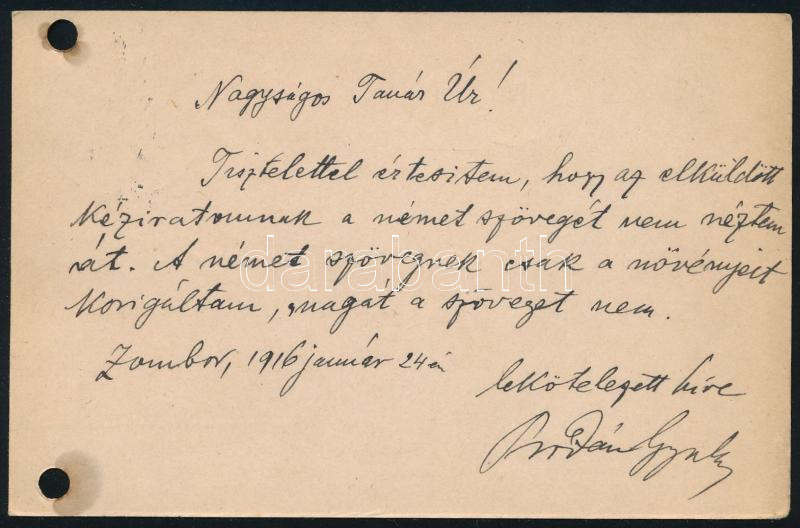 Nagyságos Tanár Úr!
Tisztelettel értesitem, hogy az elküldött
kéziratomnak a német szövegét nem néztem
át. A német szövegnek csak a növényeit
korigáltam, magát a szöveget nem.
Zombor, 1916 január 24 én
lekötelezett híve
Prodán Gyula
darabanth